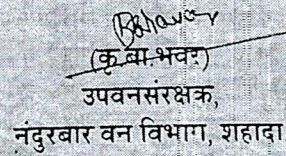 (कृ.बा.भवर)
उपवनसंरक्षक,
नंदुरबार वन विभाग, शहादा